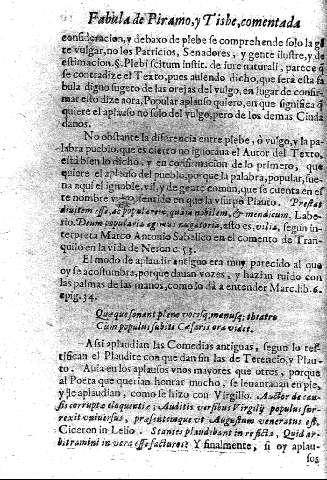 Fabula de Piramo, y Tisbe, comentada
consideracion, y debaxo de plebe se comprehende solo la gẽ
te vulgar, no los Patricios, Senadores, y gente ilustre, y de
estimacion. §. Plebi scitum instit. de iure naturali, parece q̃
se contradize el Texto, pues auiendo dicho, que será esta fa
bula digno sugeto de las orejas del vulgo, en lugar de confir-
mar esto dize aora, Popular aplauso quiero, en que significa q̃
quiere el aplauso no solo del vulgo, pero de los demas Ciuda
danos.
No obstante la diferencia entre plebe, ò vulgo, y la pa-
labra pueblo, que es cierto no ignoraua el Autor del Texto,
està bien lo dicho, y en confirmacion de lo primero, que
quiere el aplauso del pueblo, por que la palabra, popular, sue-
na aqui el ignoble, vil, y de gente comun, que se cuenta en es
te nombre vulgo, sentido en que la vsurpò Plauto. Prestas
diuitem esse, ac popularem, quàm nobilem, & mendicum. Labe-
rio. Deum popularia egimus nugatoria, esto es, vilia, segun in-
terpreta Marco Antonio Sabelico en el comento de Tran-
quilo en la vida de Neron c. 53.
El modo de aplaudir antiguo era muy parecido al que
oy se acostumbra, porque dauan vozes, y hazian ruido con
las palmas de las manos, como lo dà a entender Marc. lib. 6.
epig. 34.
Quæque sonant pleno vocesq; manusq; theatro
Cum populus subitò Cæsaris ora videt.
Assi aplaudian las Comedias antiguas, segun lo tes-
tifican el Plaudite con que dan fin las de Terencio, y Plau-
to. Auia en los aplausos vnos mayores que otros, porque
al Poeta que querian honrar mucho, se leuantauan en pie,
y le aplaudian, como se hizo con Virgilio. Auctor de cau-
sis corruptæ eloquentiæ; Auditis versibus Virgilij populus sur-
rexit vniuersus, præsentemque vt Augustum veneratus est.
Ciceron in Lelio. Stantes plaudibant in re ficta, Quid ar-
bitramini in vera esse facturos? Y finalmente, si oy aplau-
sos